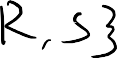 R, S}